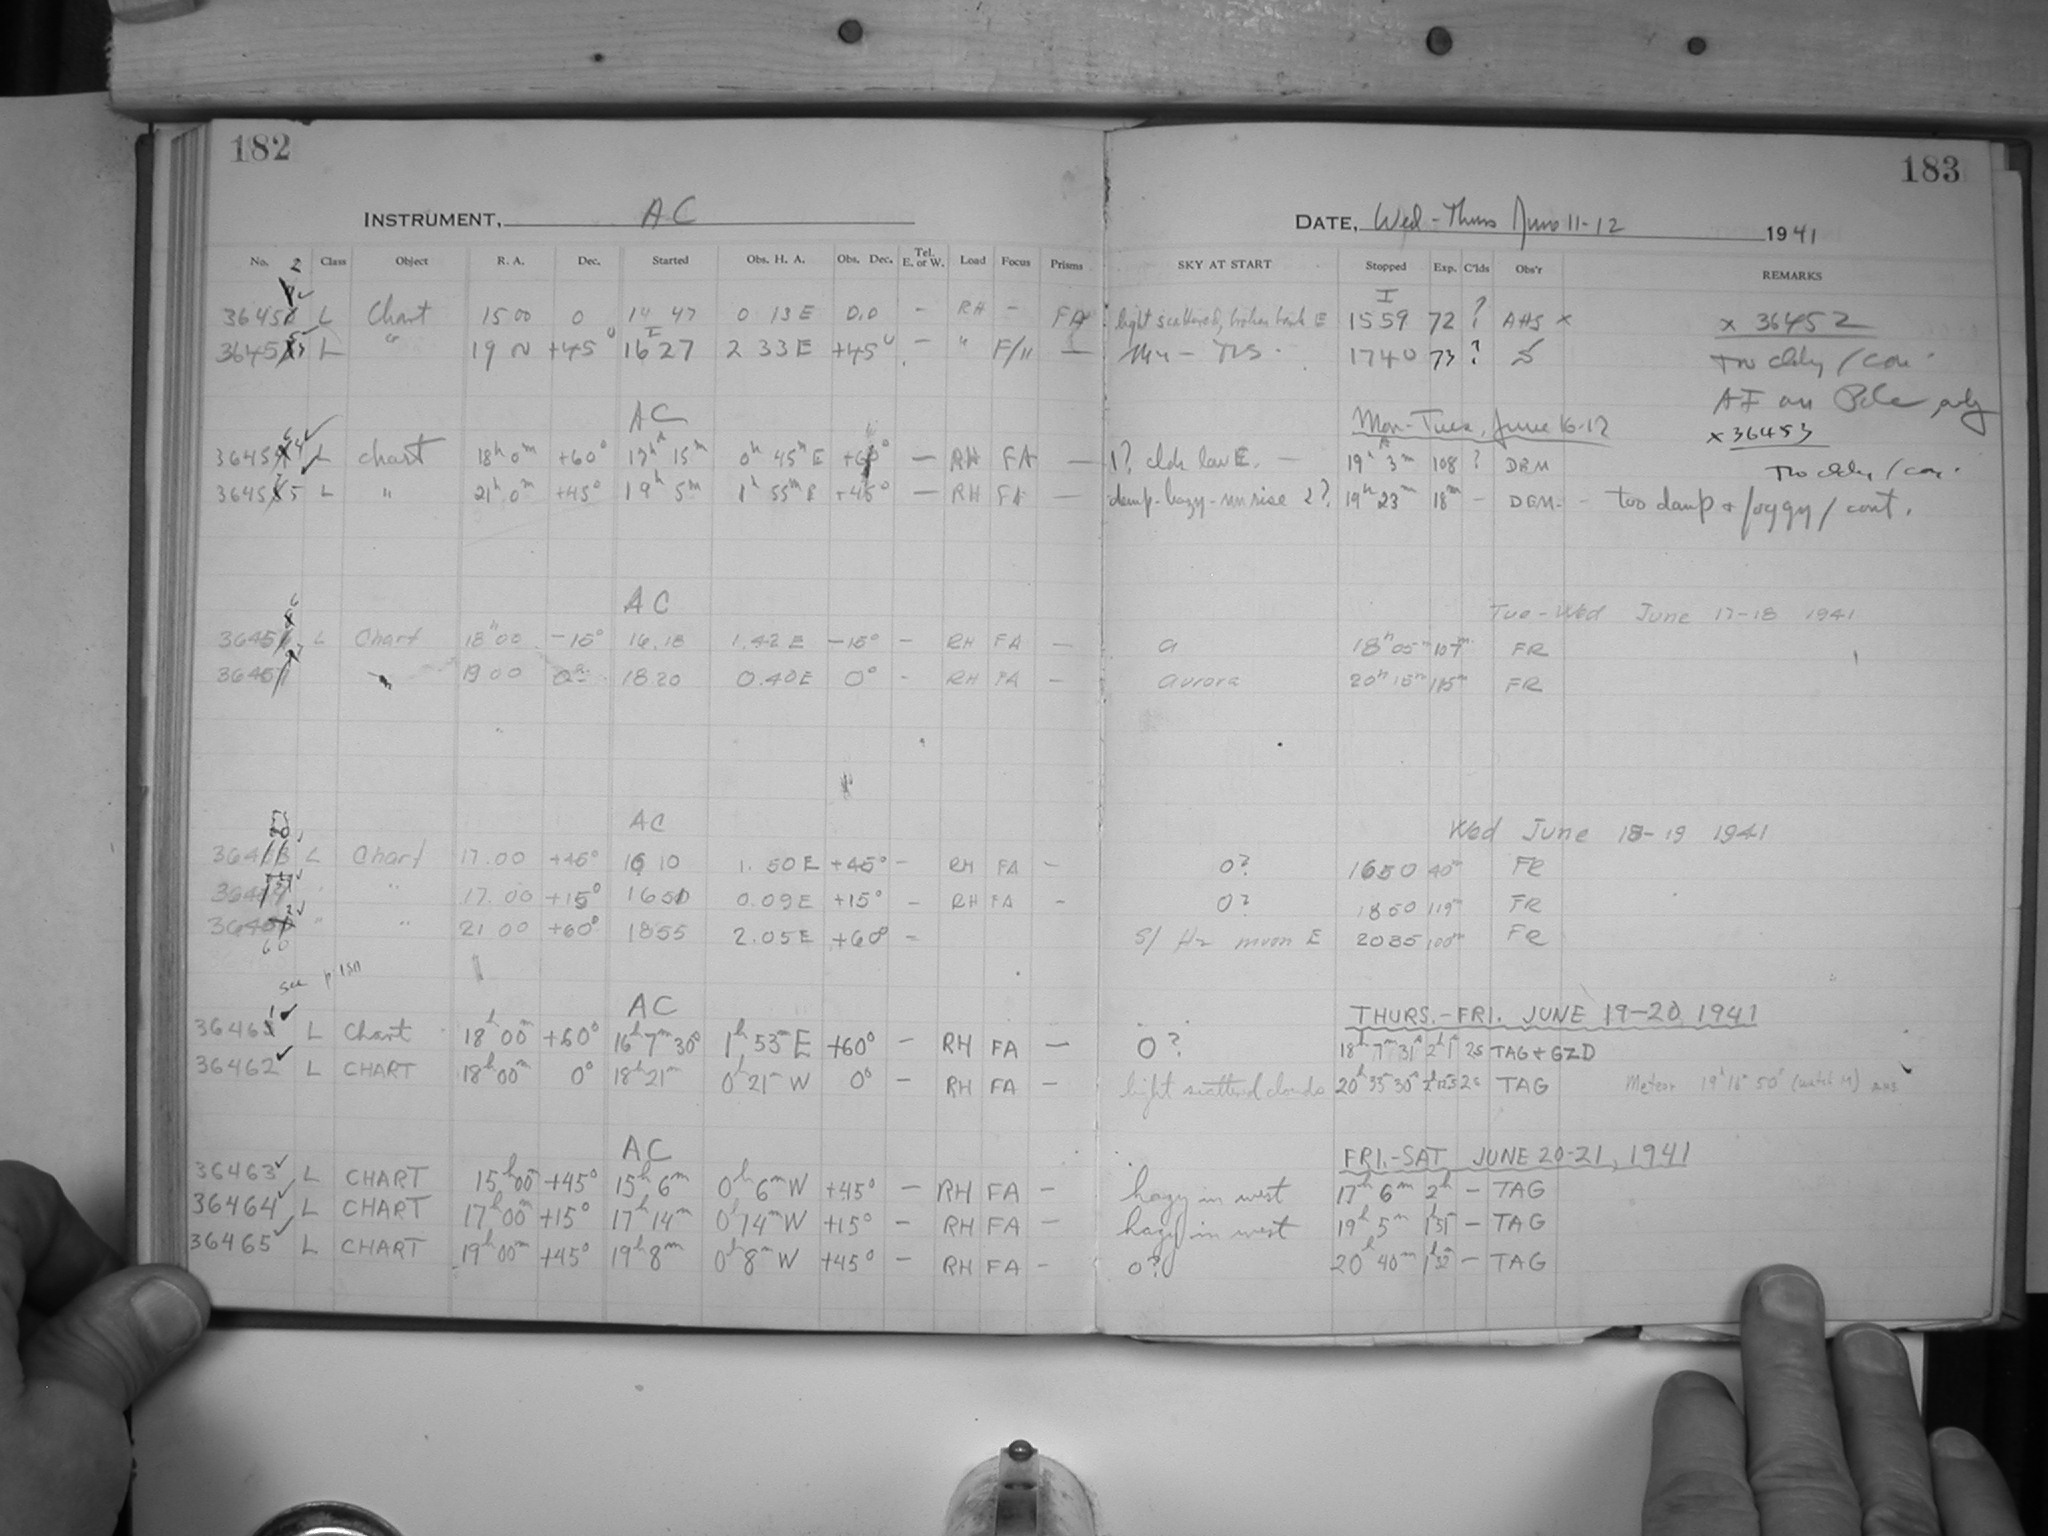 182
183
INSTRUMENT, AC
DATE, Wed - Thurs June 11-12 1941
No. Class Object R. A. Dec. Started Obs. H. A. Obs. Dec. Tel. E. or W. Load Focus Prisms SKY AT START Stopped Exp. C'lds Obs'r REMARKS
L Chart 15 00 0 14 47 0 13 E 0.0 - RH - FA light scattered, broken bank E 1559 72 ? AHS x x 36452
L " 19 +45° 16 27 2 33 E +45° - " - 1740 73 ?
AC
Mon - Tues, June 16-17
x 36453
L chart 18h 0m +60° 17h 15m 0h 45m E - RH FA - 1? clds low E. - 19h 3m 108 ? DRM
L " 21h 0m +45° 19h 5m 1h 55m E +45° - RH FA - damp - hazy - moonrise 2? 19h 23m 18m - DRM - too damp + foggy / cont.
AC
Tue - Wed June 17-18 1941
L Chart 18h 00 -15° 16.18 1.42 E -15° - RH FA - a 18h 05m 107m FR
19 00 0° 18 20 0.40 E 0° - RH FA - aurora 20h 15m 115m FR
AC
Wed June 18-19 1941
L Chart 17.00 +45° 16 10 1.50 E +45° - RH FA - 0? 1650 40m FR
" " 17.00 +15° 1651 0.09 E +15° - RH FA - 0? 1850 119m FR
" " 21 00 +60° 1855 2.05 E +60° - moon E 2035 100m FR
60
see p 180
AC
THURS.-FRI. JUNE 19-20, 1941
36461 L Chart 18h 00m +60° 16h 7m 30s 1h 53m E +60° - RH FA - 0? 18h 7m 31s 2h 1s 2s TAG + GZD
36462 L CHART 18h 00m 0° 18h 21m 0h 21m W 0° - RH FA - light scattered clouds 20h 35m 30s TAG Meteor 19h 16m 50s (watch M) AHS
AC
FRI.-SAT JUNE 20-21, 1941
36463 L CHART 15h 00m +45° 15h 6m 0h 6m W +45° - RH FA - hazy in west 17h 6m 2h - TAG
36464 L CHART 17h 00m +15° 17h 14m 0h 14m W +15° - RH FA - hazy in west 19h 5m 1h 51m - TAG
36465 L CHART 19h 00m +45° 19h 8m 0h 8m W +45° - RH FA - 0? 20h 40m 1h 32m - TAG